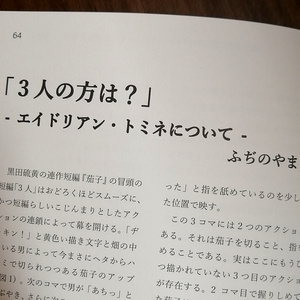 64
「３人の方は？」
- エイドリアン・トミネについて -
ふぢのやま
黒田硫黄の連作短編『茄子』の冒頭の
短編「３人」はおどろくほどスムーズに、
かつ短編らしいこじんまりとしたアク
ションの連鎖によって幕を開ける。「ヂ
キン！」と黄色い描き文字と畑の中
いる男によって今まさにヘタからハ
ミで切られつつある茄子のアップ
図1）。次のコマで男が「あちっ」と
った」と指を舐めているのを少し
た位置で映す。
この３コマには２つのアクショ
ある。それは茄子を切ること、指
めることである。実はここにもう
つ描かれていない３つ目のアクシ
が存在する。２コマ目で明らか